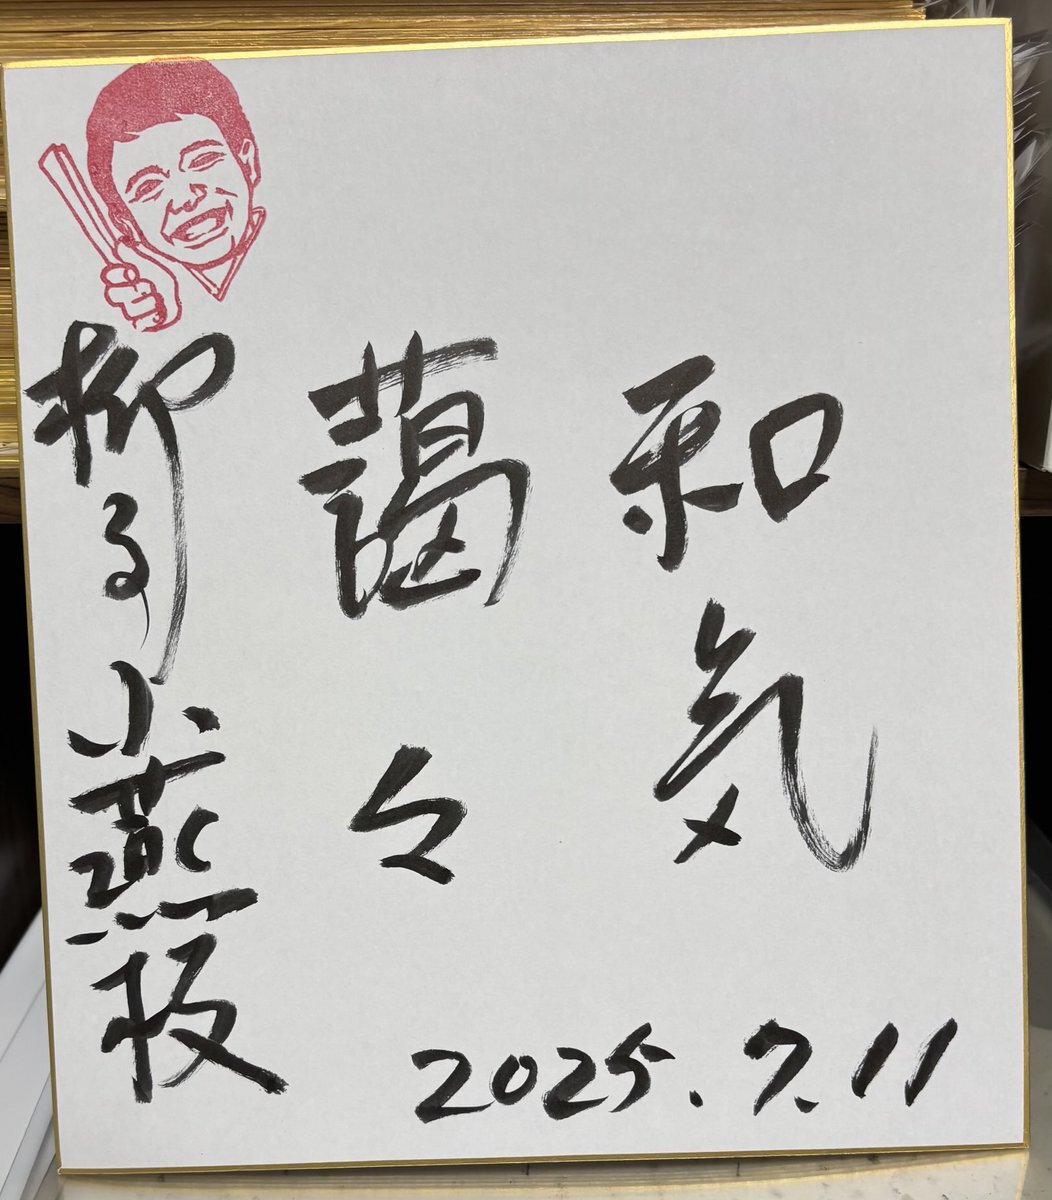 和気
藹々
柳亭小燕枝
2025.7.11